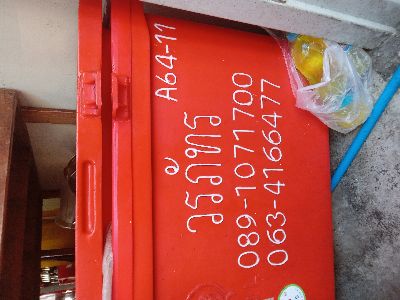 A64-11
วรภัทร
089-1071700
063-4166477